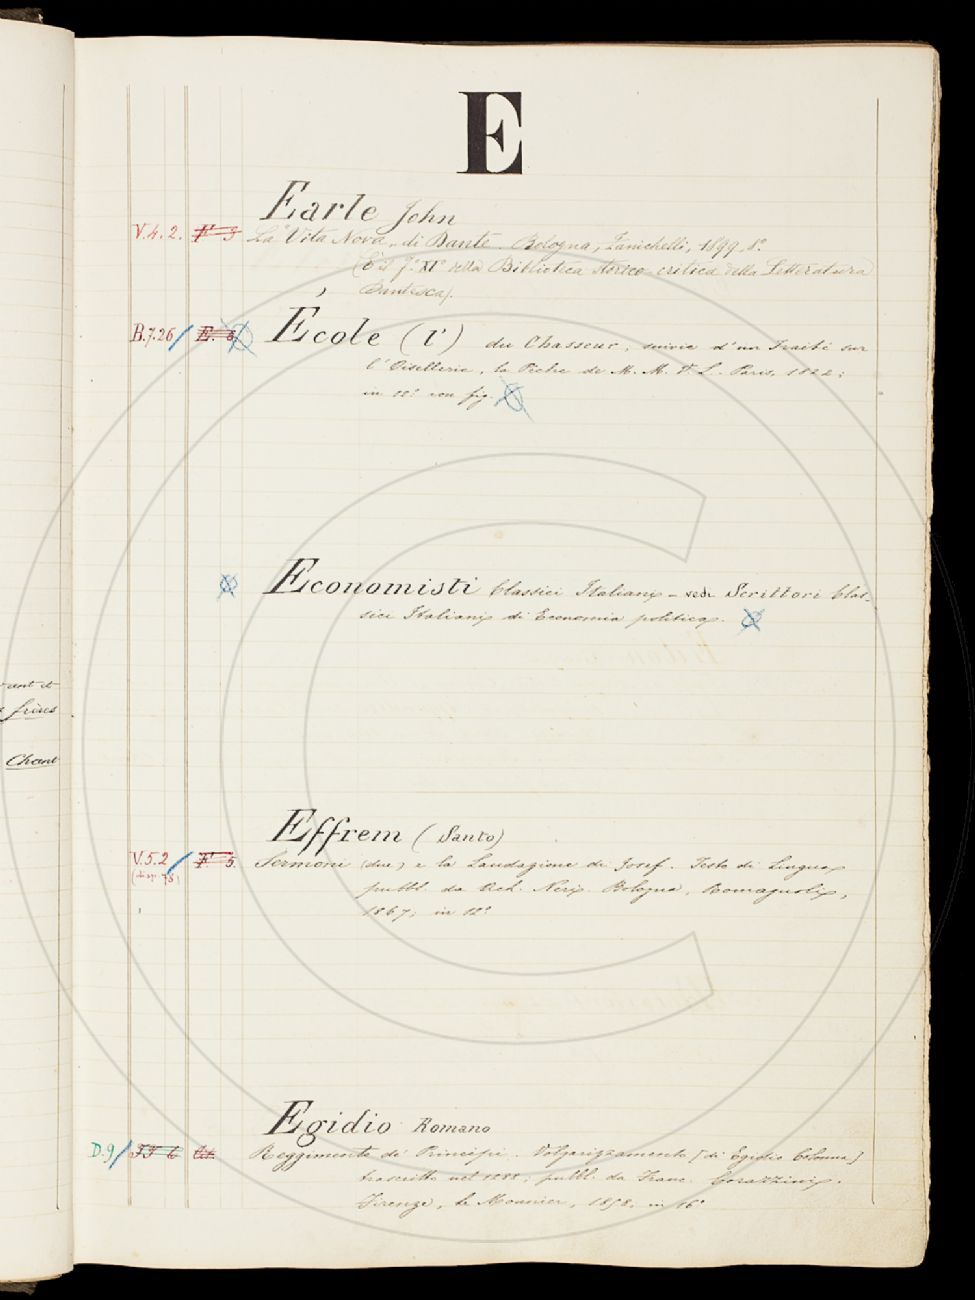 E
Earle John
V.4.2. F 3 La "Vita Nova" di Dante. Bologna, Zanichelli, 1899, 8°.
(È il f.° XI° della Biblioteca storico critica della Letteratura
Dantesca).
B.7.26 / E. 6 Ecole (l') du Chasseur, suivie d'un Traité sur
l'Oisellerie, la Pêche de M. M. Paris, 1822;
in 12° con fig.
Economisti Classici Italiani - vedi Scrittori Clas-
sici Italiani di Economia politica.
Effrem (Santo)
V.5.2 / F 5. Sermoni (due) e la Laudazione di Josef. Testo di Lingua
(disp. 78)
pubbl. da Ach. Neri. Bologna, Romagnoli,
1867; in 12°
Egidio Romano
D.9 / Reggimento de' Principi. Volgarizzamento [di Egidio Colonna]
trascritto nel 1288; pubbl. da Franc. Corazzini.
Firenze, Le Monnier, 1858, in 16°
ant et
frères
Chant